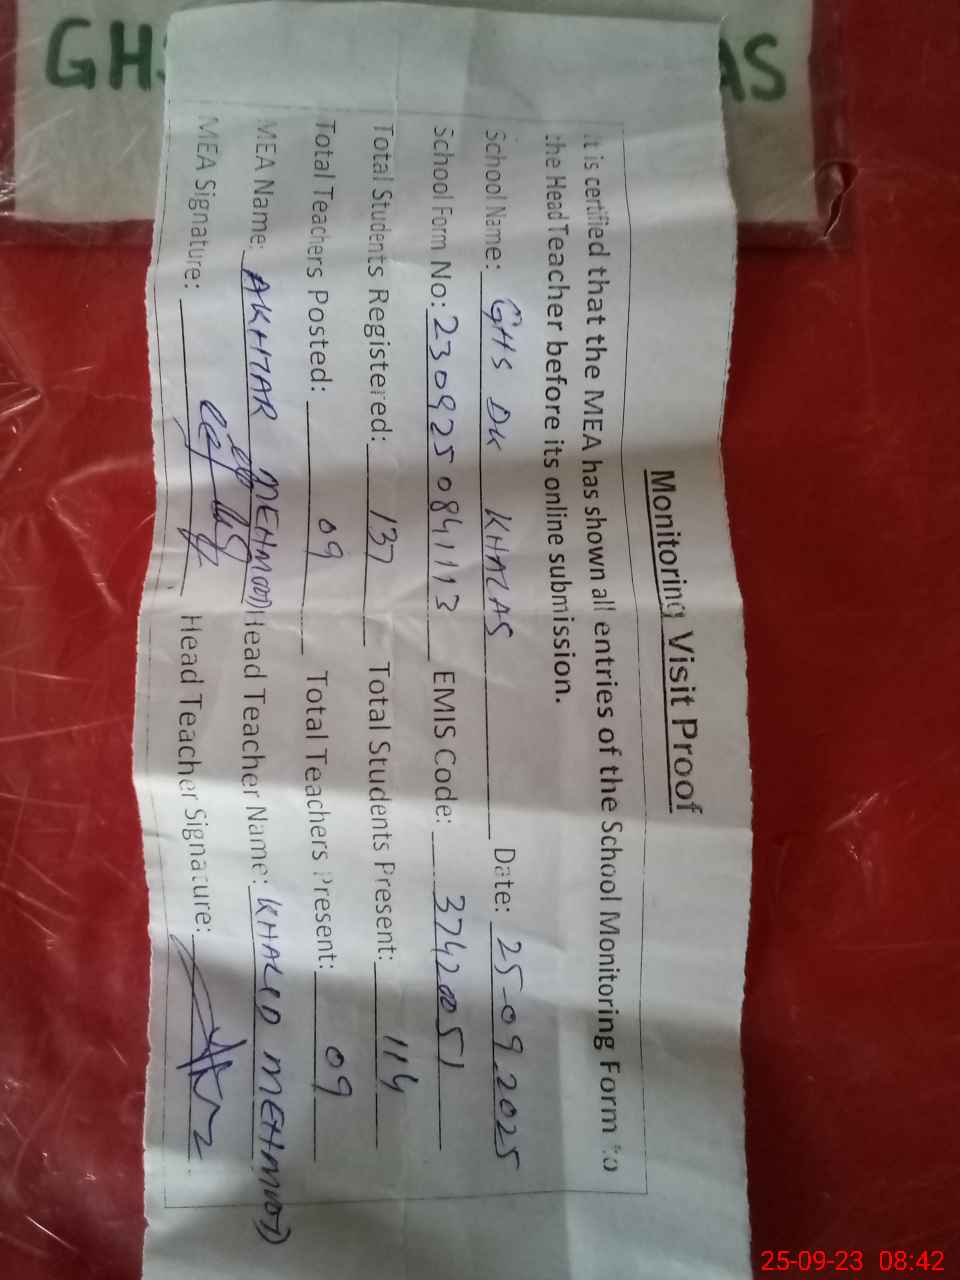 GHS AS
Monitoring Visit Proof
It is certified that the MEA has shown all entries of the School Monitoring Form to
the Head Teacher before its online submission.
School Name: GHS DK KHALAS Date: 25-09-2025
School Form No: 230925084113 EMIS Code: 37420051
Total Students Registered: 137 Total Students Present: 114
Total Teachers Posted: 09 Total Teachers Present: 09
MEA Name: AKHTAR MEHMOOD Head Teacher Name: KHALID MEHMOOD
MEA Signature: Head Teacher Signature:
25-09-23 08:42